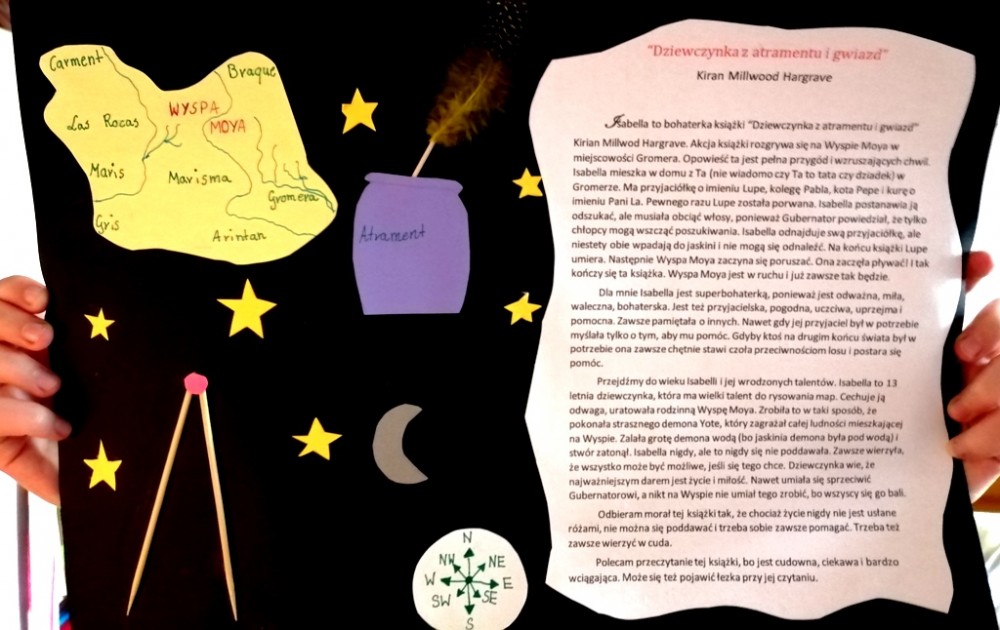 Carment
Braque
WYSPA
MOYA
Las Rocas
Maris
Marisma
Gromera
Gris
Arintan
Atrament
N
NW
NE
W
E
SW
SE
S
"Dziewczynka z atramentu i gwiazd"
Kiran Millwood Hargrave
Isabella to bohaterka książki "Dziewczynka z atramentu i gwiazd"
Kirian Millwod Hargrave. Akcja książki rozgrywa się na Wyspie Moya w
miejscowości Gromera. Opowieść ta jest pełna przygód i wzruszających chwil.
Isabella mieszka w domu z Ta (nie wiadomo czy Ta to tata czy dziadek) w
Gromerze. Ma przyjaciółkę o imieniu Lupe, kolegę Pabla, kota Pepe i kurę o
imieniu Pani La. Pewnego razu Lupe została porwana. Isabella postanawia ją
odszukać, ale musiała obciąć włosy, ponieważ Gubernator powiedział, że tylko
chłopcy mogą wszcząć poszukiwania. Isabella odnajduje swą przyjaciółkę, ale
niestety obie wpadają do jaskini i nie mogą się odnaleźć. Na końcu książki Lupe
umiera. Następnie Wyspa Moya zaczyna się poruszać. Ona zaczęła pływać! I tak
kończy się ta książka. Wyspa Moya jest w ruchu i już zawsze tak będzie.
Dla mnie Isabella jest superbohaterką, ponieważ jest odważna, miła,
waleczna, bohaterska. Jest też przyjacielska, pogodna, uczciwa, uprzejma i
pomocna. Zawsze pamiętała o innych. Nawet gdy jej przyjaciel był w potrzebie
myślała tylko o tym, aby mu pomóc. Gdyby ktoś na drugim końcu świata był w
potrzebie ona zawsze chętnie stawi czoła przeciwnościom losu i postara się
pomóc.
Przejdźmy do wieku Isabelli i jej wrodzonych talentów. Isabella to 13
letnia dziewczynka, która ma wielki talent do rysowania map. Cechuje ją
odwaga, uratowała rodzinną Wyspę Moya. Zrobiła to w taki sposób, że
pokonała strasznego demona Yote, który zagrażał całej ludności mieszkającej
na Wyspie. Zalała grotę demona wodą (bo jaskinia demona była pod wodą) i
stwór zatonął. Isabella nigdy, ale to nigdy się nie poddawała. Zawsze wierzyła,
że wszystko może być możliwe, jeśli się tego chce. Dziewczynka wie, że
najważniejszym darem jest życie i miłość. Nawet umiała się sprzeciwić
Gubernatorowi, a nikt na Wyspie nie umiał tego zrobić, bo wszyscy się go bali.
Odbieram morał tej książki tak, że chociaż życie nigdy nie jest usłane
różami, nie można się poddawać i trzeba sobie zawsze pomagać. Trzeba też
zawsze wierzyć w cuda.
Polecam przeczytanie tej książki, bo jest cudowna, ciekawa i bardzo
wciągająca. Może się też pojawić łezka przy jej czytaniu.